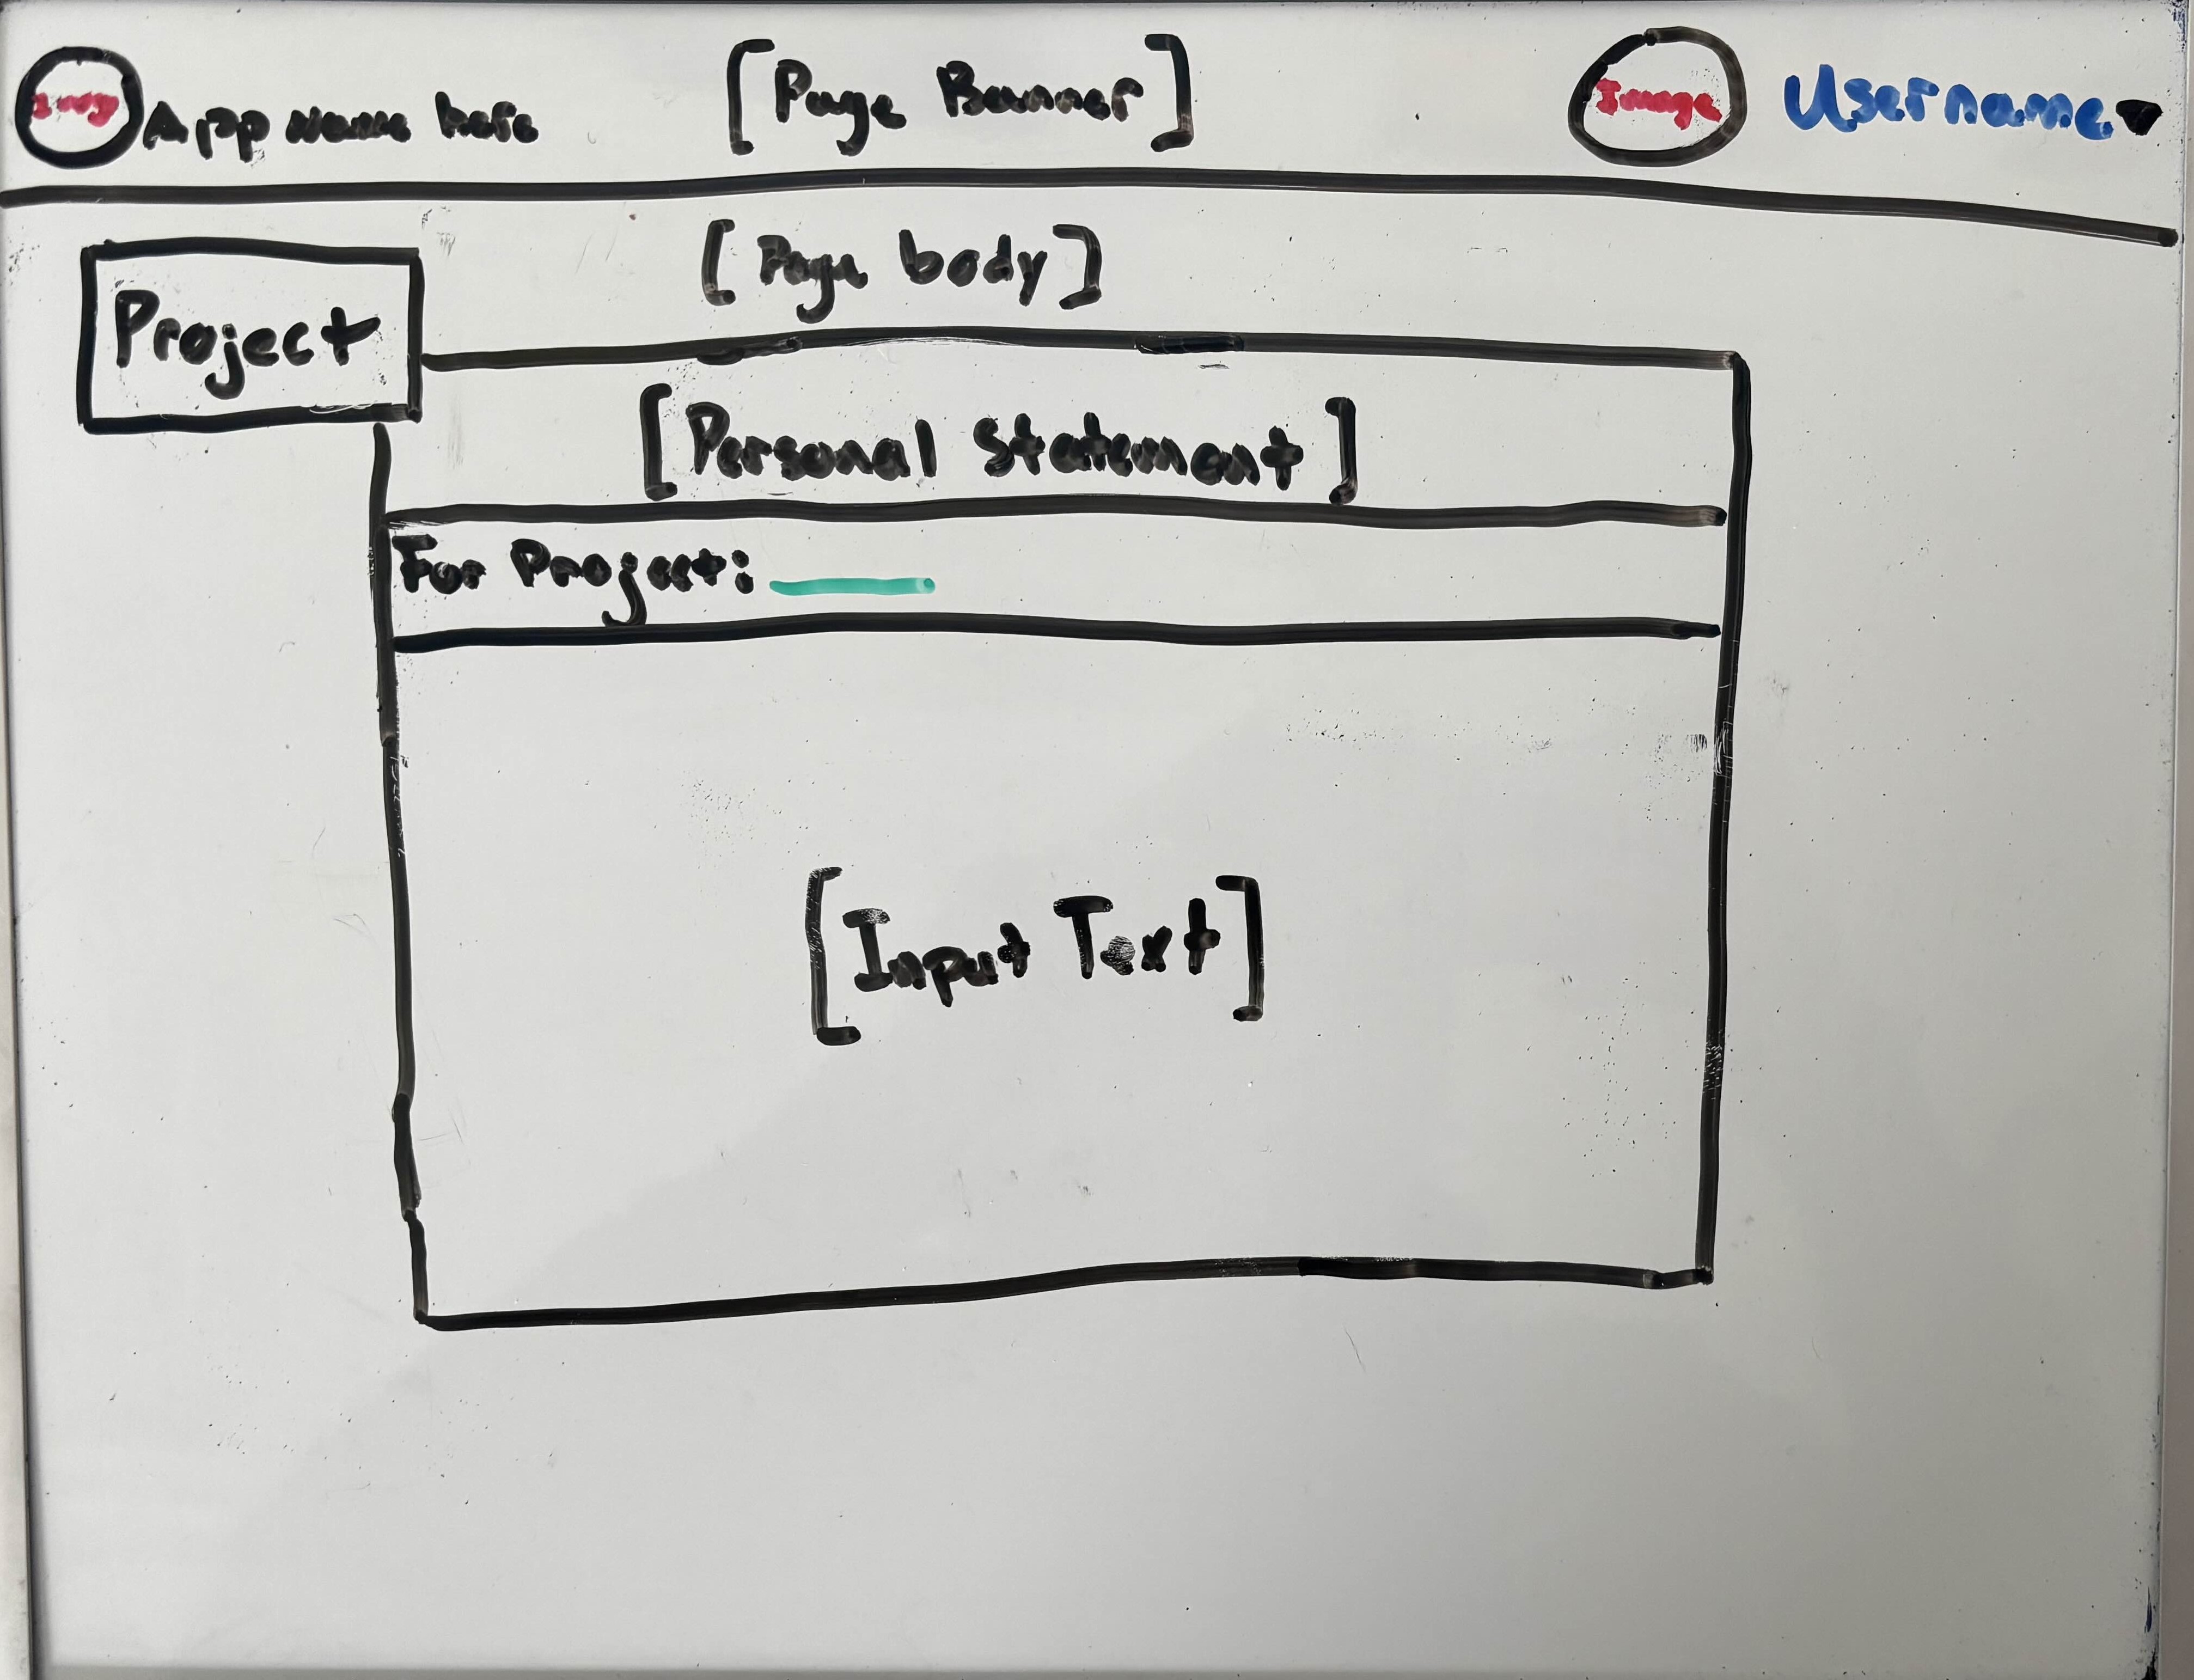 Img App Name here [Page Banner] Image Username
[Page body]
Project
[Personal Statement]
For Project:
[Input Text]